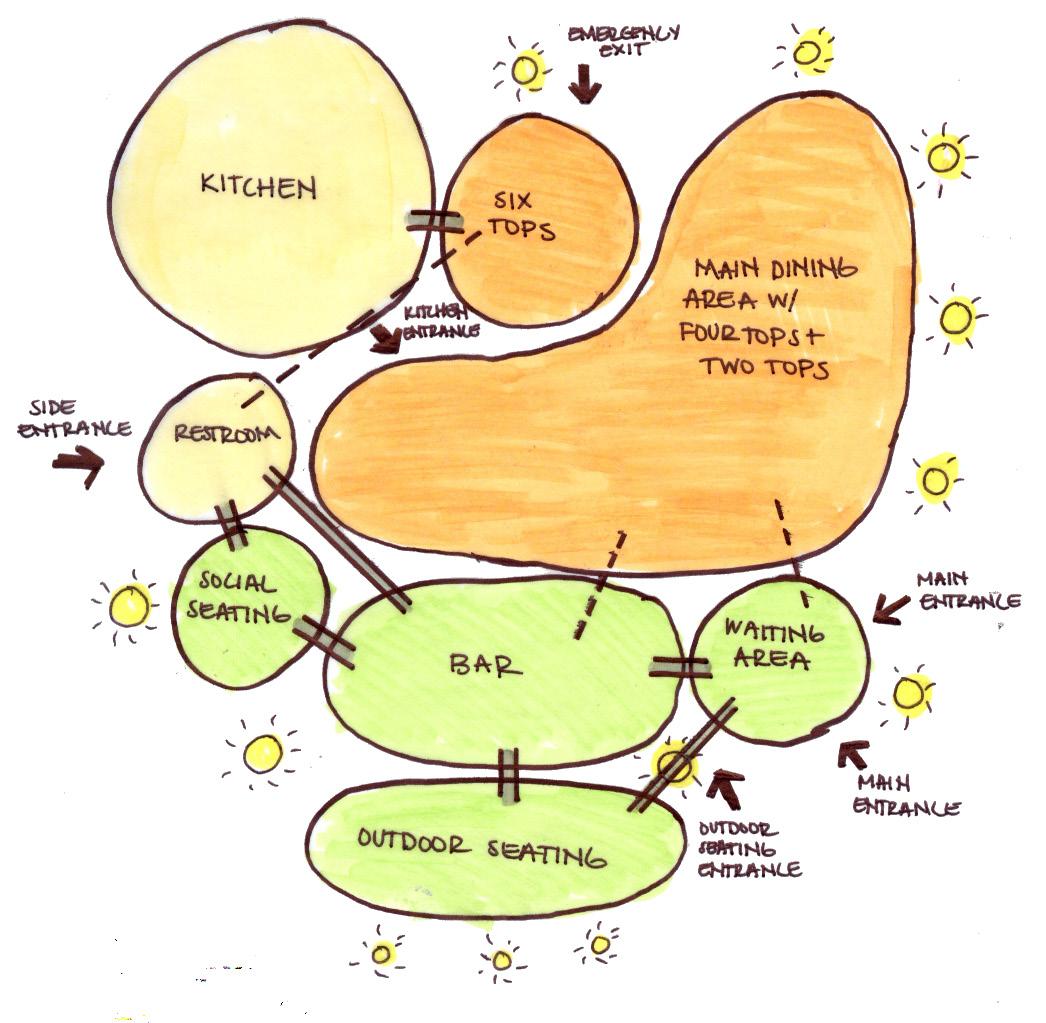 EMERGENCY
EXIT
KITCHEN
SIX
TOPS
MAIN DINING
AREA W/
FOUR TOPS +
TWO TOPS
KITCHEN
ENTRANCE
SIDE
ENTRANCE
RESTROOM
SOCIAL
SEATING
BAR
WAITING
AREA
MAIN
ENTRANCE
MAIN
ENTRANCE
OUTDOOR
SEATING
ENTRANCE
OUTDOOR SEATING